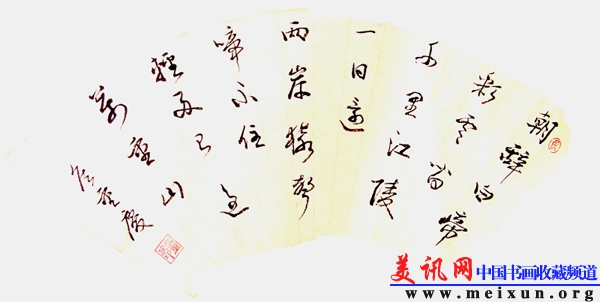 朝辭白帝
彩雲间
千里江陵
一日還
兩岸猿聲
啼不住
輕舟已過
萬重山
美讯网 中国书画收藏频道
www.meixun.org